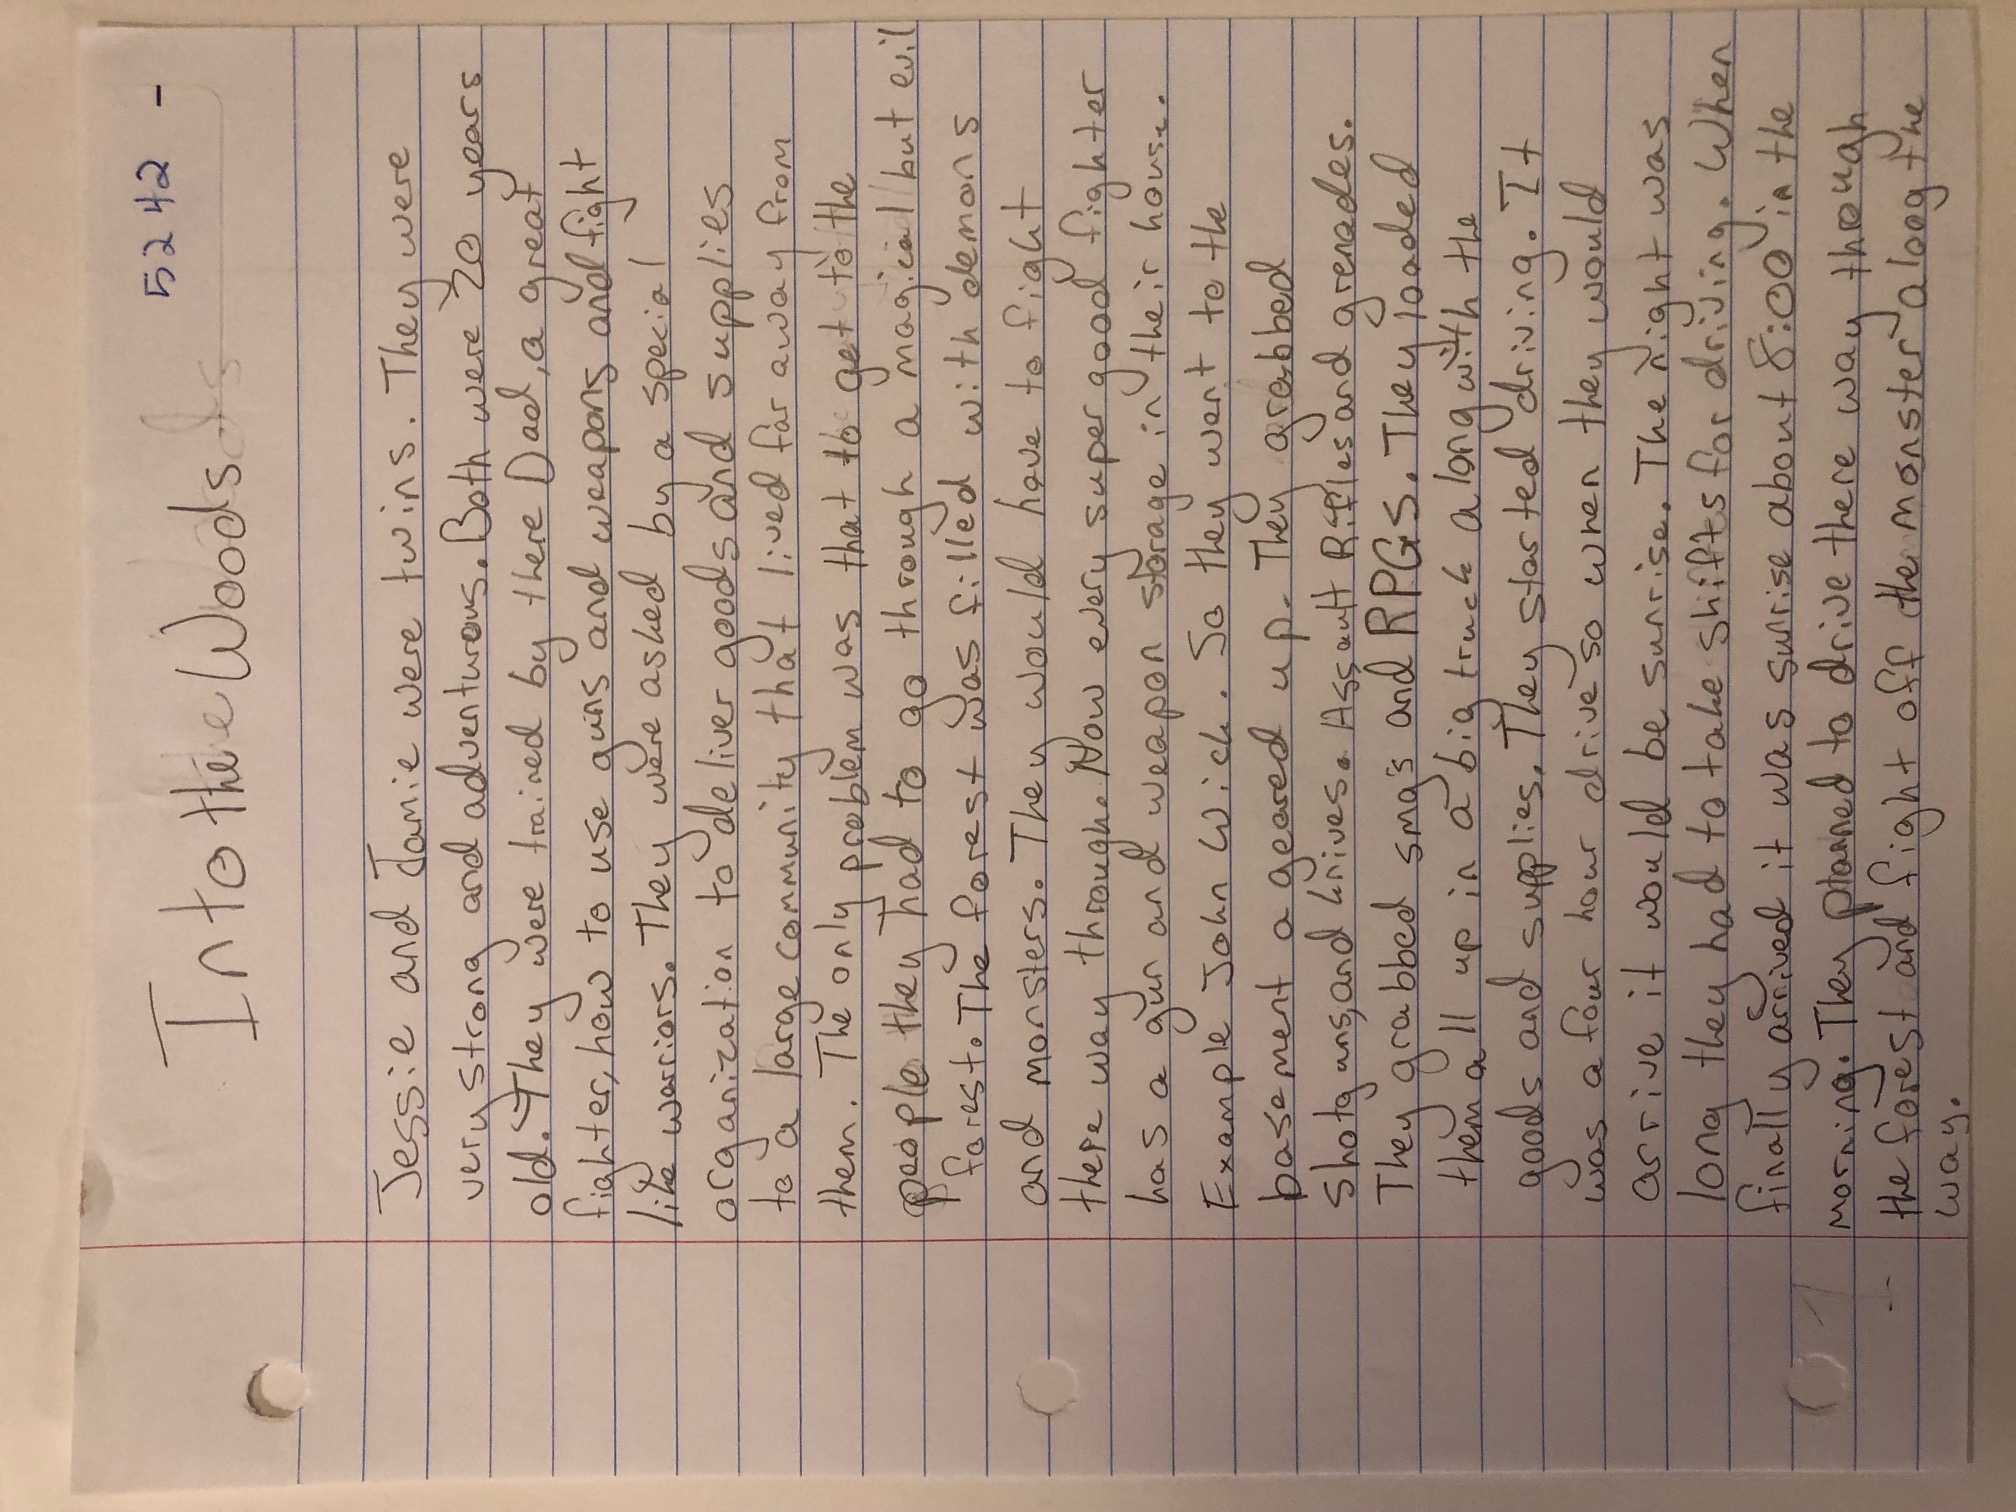 5242 -
Into the Woods
Jessie and Jamie were twins. They were
very strong and adventurous. Both were 20 years
old. They were trained by there Dad, a great
fighter, how to use guns and weapons and fight
like warriors. They were asked by a special
organization to deliver goods and supplies
to a large community that lived far away from
them. The only problem was that to get to the
people they had to go through a magical but evil
forest. The forest was filled with demons
and monsters. They would have to fight
there way through. Now every super good fighter
has a gun and weapon storage in their house.
Example John Wick. So they went to the
basement a geared up. They grabbed
shotguns, and knives. Assault Rifles and grenades.
They grabbed smg's and RPGS. They loaded
them all up in a big truck along with the
goods and supplies. They started driving. It
was a four hour drive so when they would
arrive it would be sunrise. The night was
long they had to take shifts for driving. When
finally arrived it was sunrise about 8:00 in the
morning. They planned to drive there way through
the forest and fight off the monster along the
way.